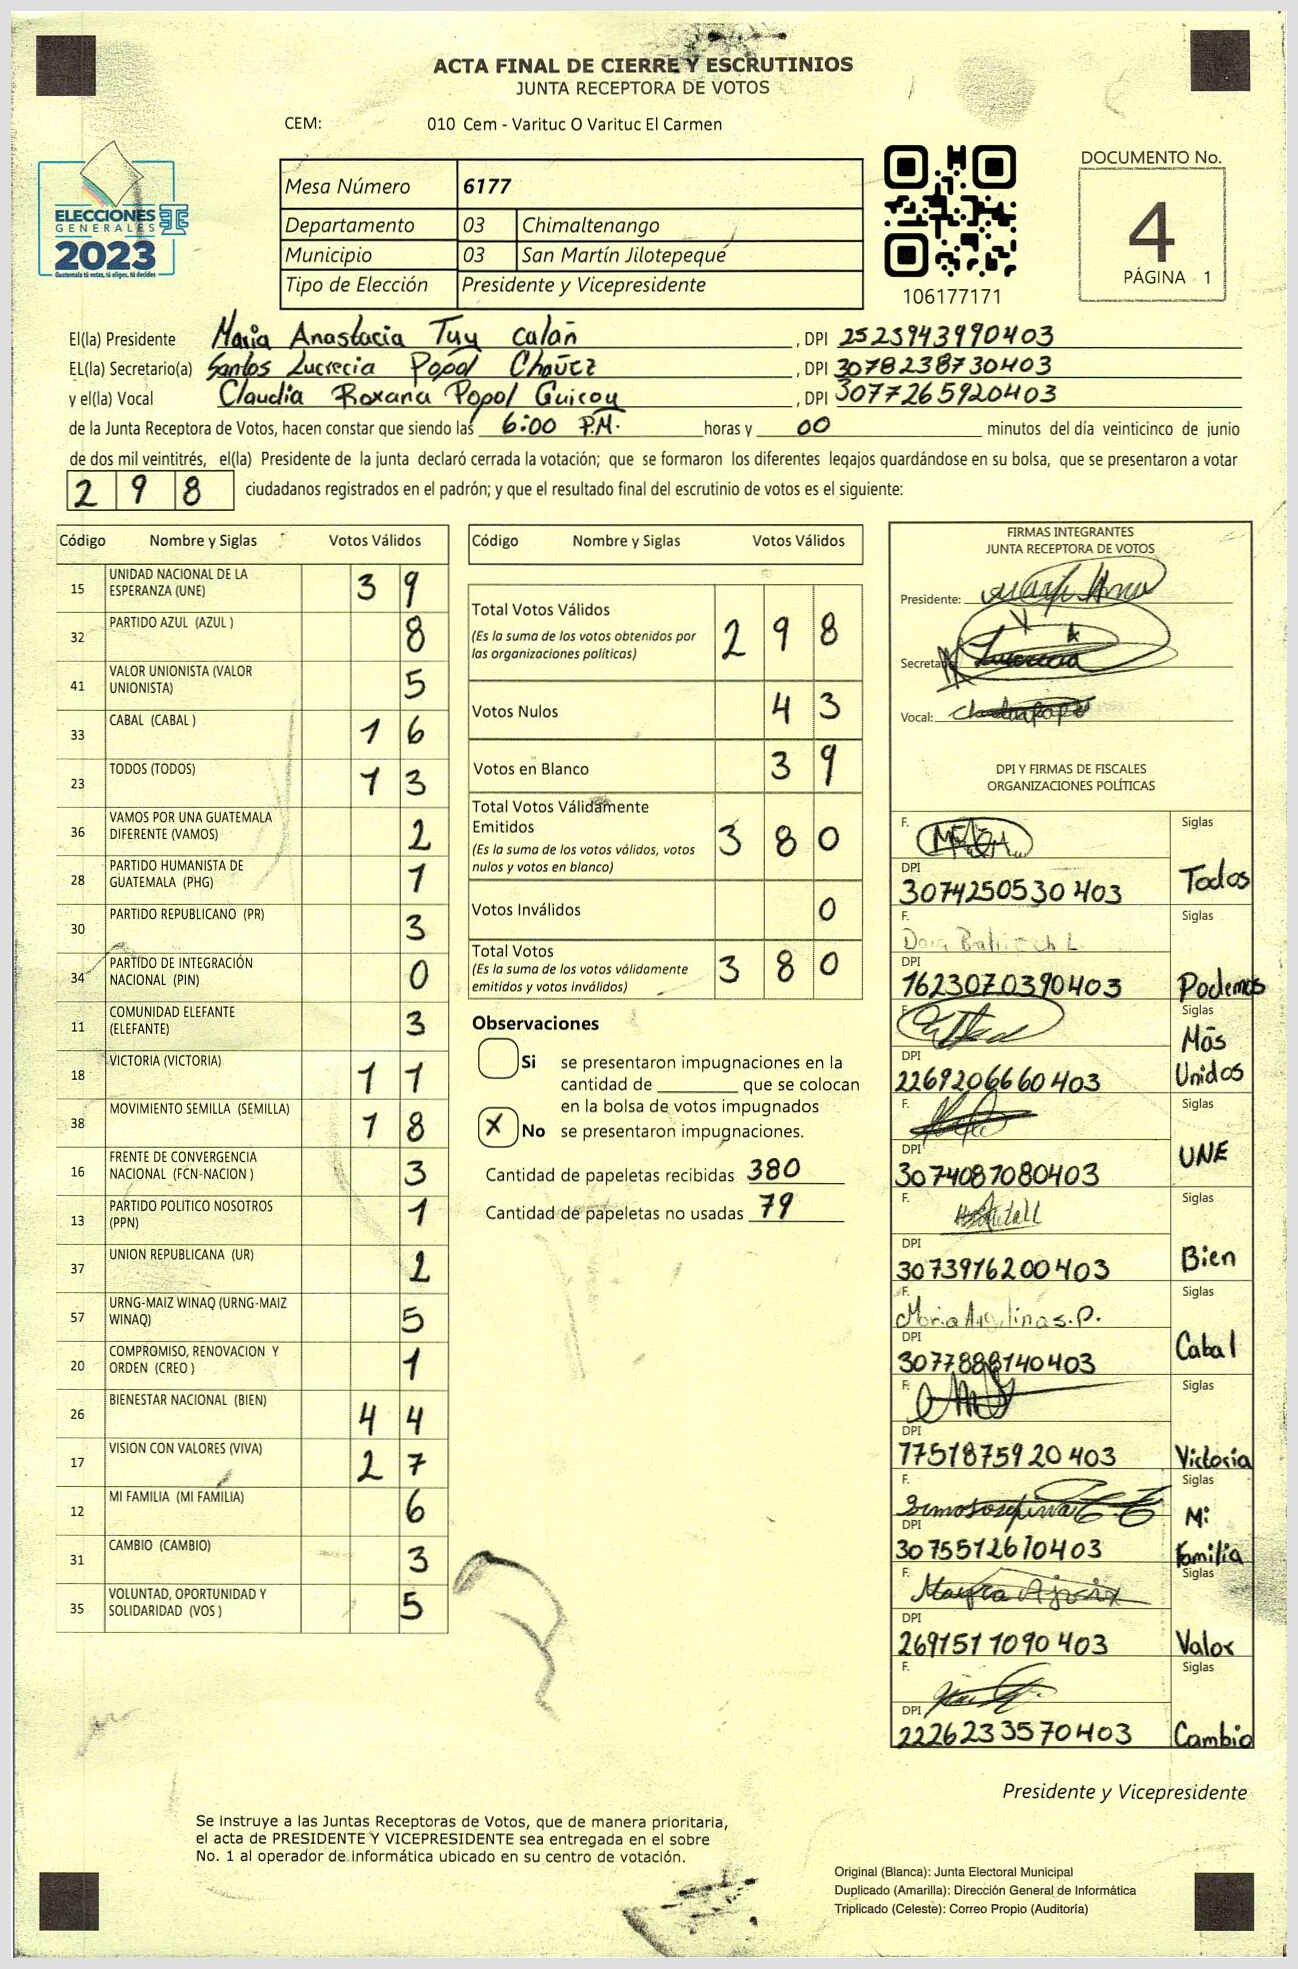 ACTA FINAL DE CIERRE Y ESCRUTINIOS
JUNTA RECEPTORA DE VOTOS
CEM: 010 Cem - Varituc O Varituc El Carmen
ELECCIONES
GENERALES
2023
Guatemala tú votas, tú eliges, tú decides
Mesa Número 6177
Departamento 03 Chimaltenango
Municipio 03 San Martín Jilotepequé
Tipo de Elección Presidente y Vicepresidente
106177171
DOCUMENTO No.
4
PÁGINA 1
El(la) Presidente Maria Anastacia Tuy Calán , DPI 2525943990403
EL(la) Secretario(a) Santos Lucrecia Popol Chávez , DPI 3078238730403
y el(la) Vocal Claudia Roxana Popol Guicoy , DPI 3077265920403
de la Junta Receptora de Votos, hacen constar que siendo las 6:00 P.M. horas y 00 minutos del día veinticinco de junio
de dos mil veintitrés, el(la) Presidente de la junta declaró cerrada la votación; que se formaron los diferentes legajos guardándose en su bolsa, que se presentaron a votar
298 ciudadanos registrados en el padrón; y que el resultado final del escrutinio de votos es el siguiente:
Código Nombre y Siglas Votos Válidos
15 UNIDAD NACIONAL DE LA ESPERANZA (UNE) 39
32 PARTIDO AZUL (AZUL ) 8
41 VALOR UNIONISTA (VALOR UNIONISTA) 5
33 CABAL (CABAL ) 16
23 TODOS (TODOS) 13
36 VAMOS POR UNA GUATEMALA DIFERENTE (VAMOS) 2
28 PARTIDO HUMANISTA DE GUATEMALA (PHG) 1
30 PARTIDO REPUBLICANO (PR) 3
34 PARTIDO DE INTEGRACIÓN NACIONAL (PIN) 0
11 COMUNIDAD ELEFANTE (ELEFANTE) 3
18 VICTORIA (VICTORIA) 11
38 MOVIMIENTO SEMILLA (SEMILLA) 18
16 FRENTE DE CONVERGENCIA NACIONAL (FCN-NACION ) 3
13 PARTIDO POLITICO NOSOTROS (PPN) 1
37 UNION REPUBLICANA (UR) 2
57 URNG-MAIZ WINAQ (URNG-MAIZ WINAQ) 5
20 COMPROMISO, RENOVACION Y ORDEN (CREO ) 1
26 BIENESTAR NACIONAL (BIEN) 44
17 VISION CON VALORES (VIVA) 27
12 MI FAMILIA (MI FAMILIA) 6
31 CAMBIO (CAMBIO) 3
35 VOLUNTAD, OPORTUNIDAD Y SOLIDARIDAD (VOS ) 5
Código Nombre y Siglas Votos Válidos
Total Votos Válidos 298
(Es la suma de los votos obtenidos por
las organizaciones políticas)
Votos Nulos 43
Votos en Blanco 39
Total Votos Válidamente
Emitidos 380
(Es la suma de los votos válidos, votos
nulos y votos en blanco)
Votos Inválidos 0
Total Votos 380
(Es la suma de los votos válidamente
emitidos y votos inválidos)
Observaciones
Si se presentaron impugnaciones en la
cantidad de ________ que se colocan
en la bolsa de votos impugnados
X No se presentaron impugnaciones.
Cantidad de papeletas recibidas 380
Cantidad de papeletas no usadas 79
FIRMAS INTEGRANTES
JUNTA RECEPTORA DE VOTOS
Presidente:
Secretario
Vocal:
DPI Y FIRMAS DE FISCALES
ORGANIZACIONES POLÍTICAS
F. Siglas
DPI
3074250530403 Todos
F. Siglas
DPI
1623070390403 Podemos
F. Siglas
DPI Más
2269206660403 Unidos
F. Siglas
DPI
3074087080403 UNE
F. Siglas
DPI
3073916200403 Bien
F. Siglas
Maria Angelina S.P.
DPI
3077888140403 Cabal
F. Siglas
DPI
1751875920403 Victoria
F. Siglas
DPI Mi
3075512610403 Familia
F. Siglas
Mayra Ajsaix
DPI
2691511090403 Valor
F. Siglas
DPI
2226233570403 Cambio
Presidente y Vicepresidente
Se instruye a las Juntas Receptoras de Votos, que de manera prioritaria,
el acta de PRESIDENTE Y VICEPRESIDENTE sea entregada en el sobre
No. 1 al operador de informática ubicado en su centro de votación.
Original (Blanca): Junta Electoral Municipal
Duplicado (Amarilla): Dirección General de Informática
Triplicado (Celeste): Correo Propio (Auditoría)